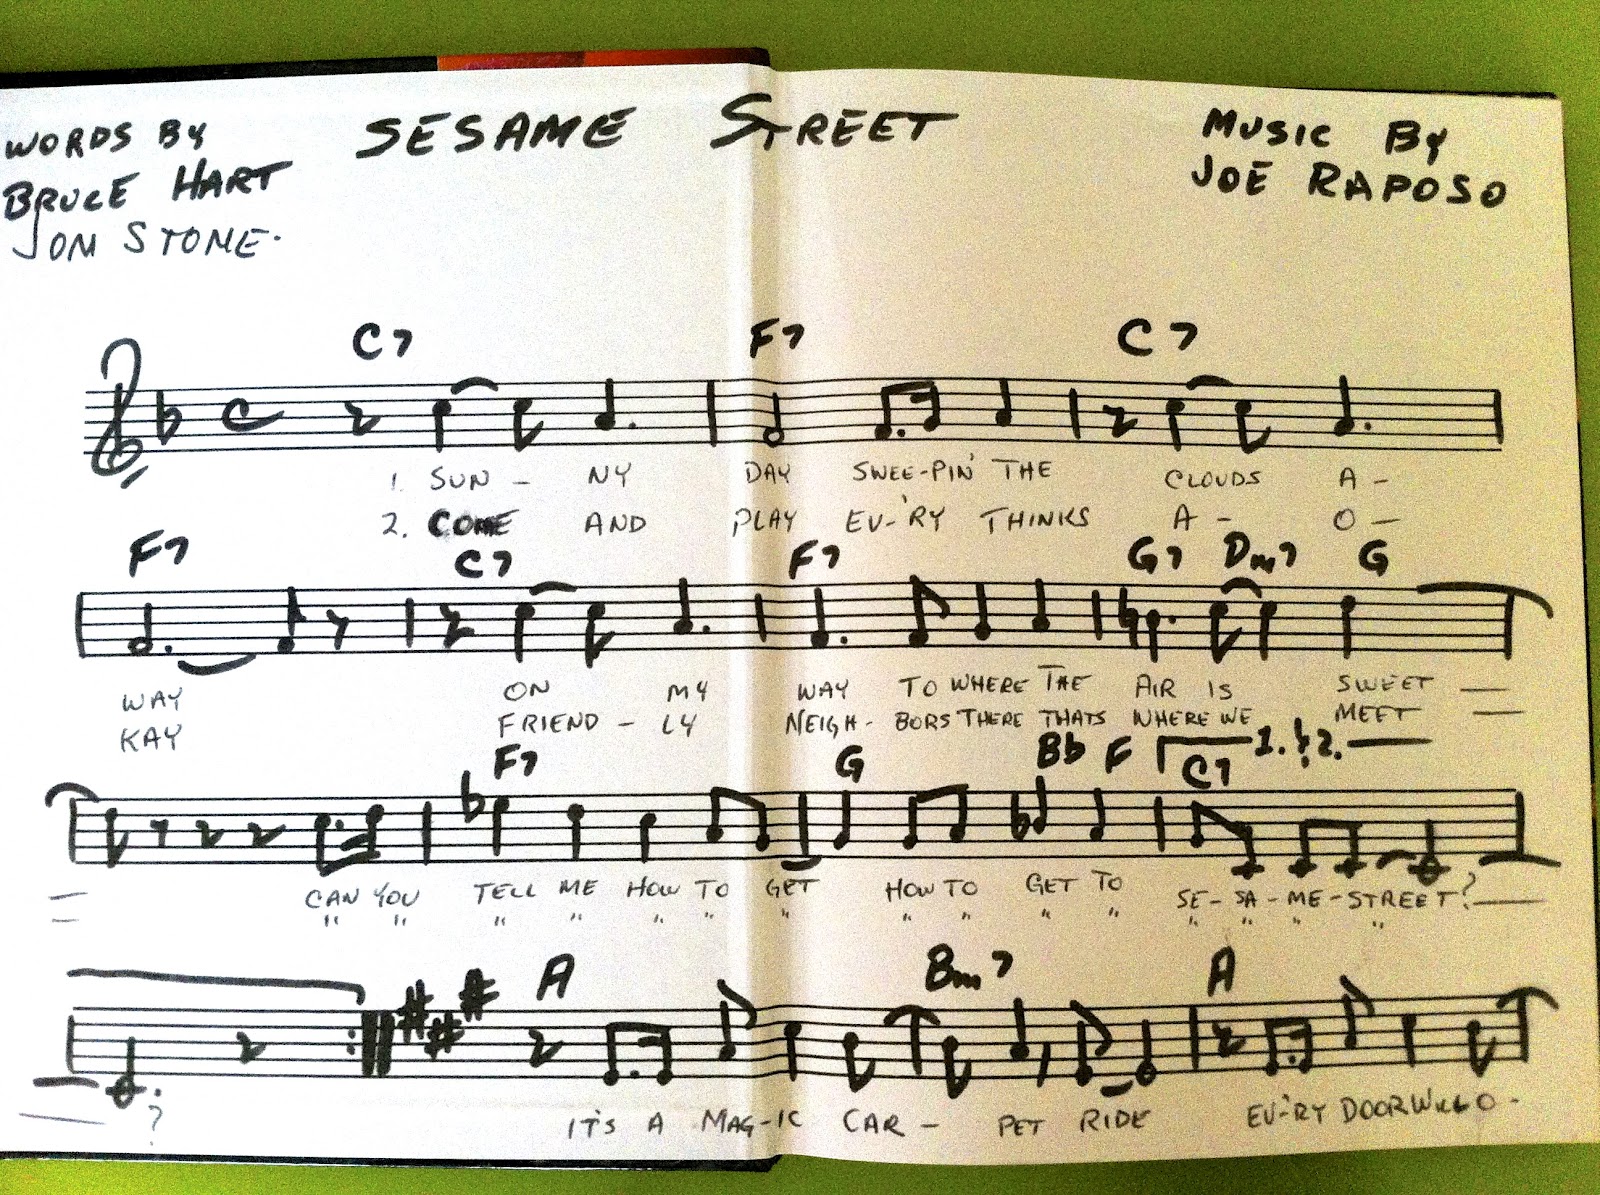 WORDS BY
BRUCE HART
JON STONE.
SESAME STREET
MUSIC BY
JOE RAPOSO
C7 F7 C7
1. SUN - NY DAY SWEE-PIN' THE CLOUDS A -
2. COME AND PLAY EV-'RY THINKS A - O -
F7 C7 F7 G7 Dm7 G
WAY ON MY WAY TO WHERE THE AIR IS SWEET —
KAY FRIEND - LY NEIGH - BORS THERE THATS WHERE WE MEET —
F7 G Bb F C7 1. & 2.
— CAN YOU TELL ME HOW TO GET HOW TO GET TO SE - SA - ME - STREET? —
— " " " " " " " " " " " " " " "
A Bm7 A
? IT'S A MAG-IC CAR - PET RIDE EV-'RY DOOR WILL O -